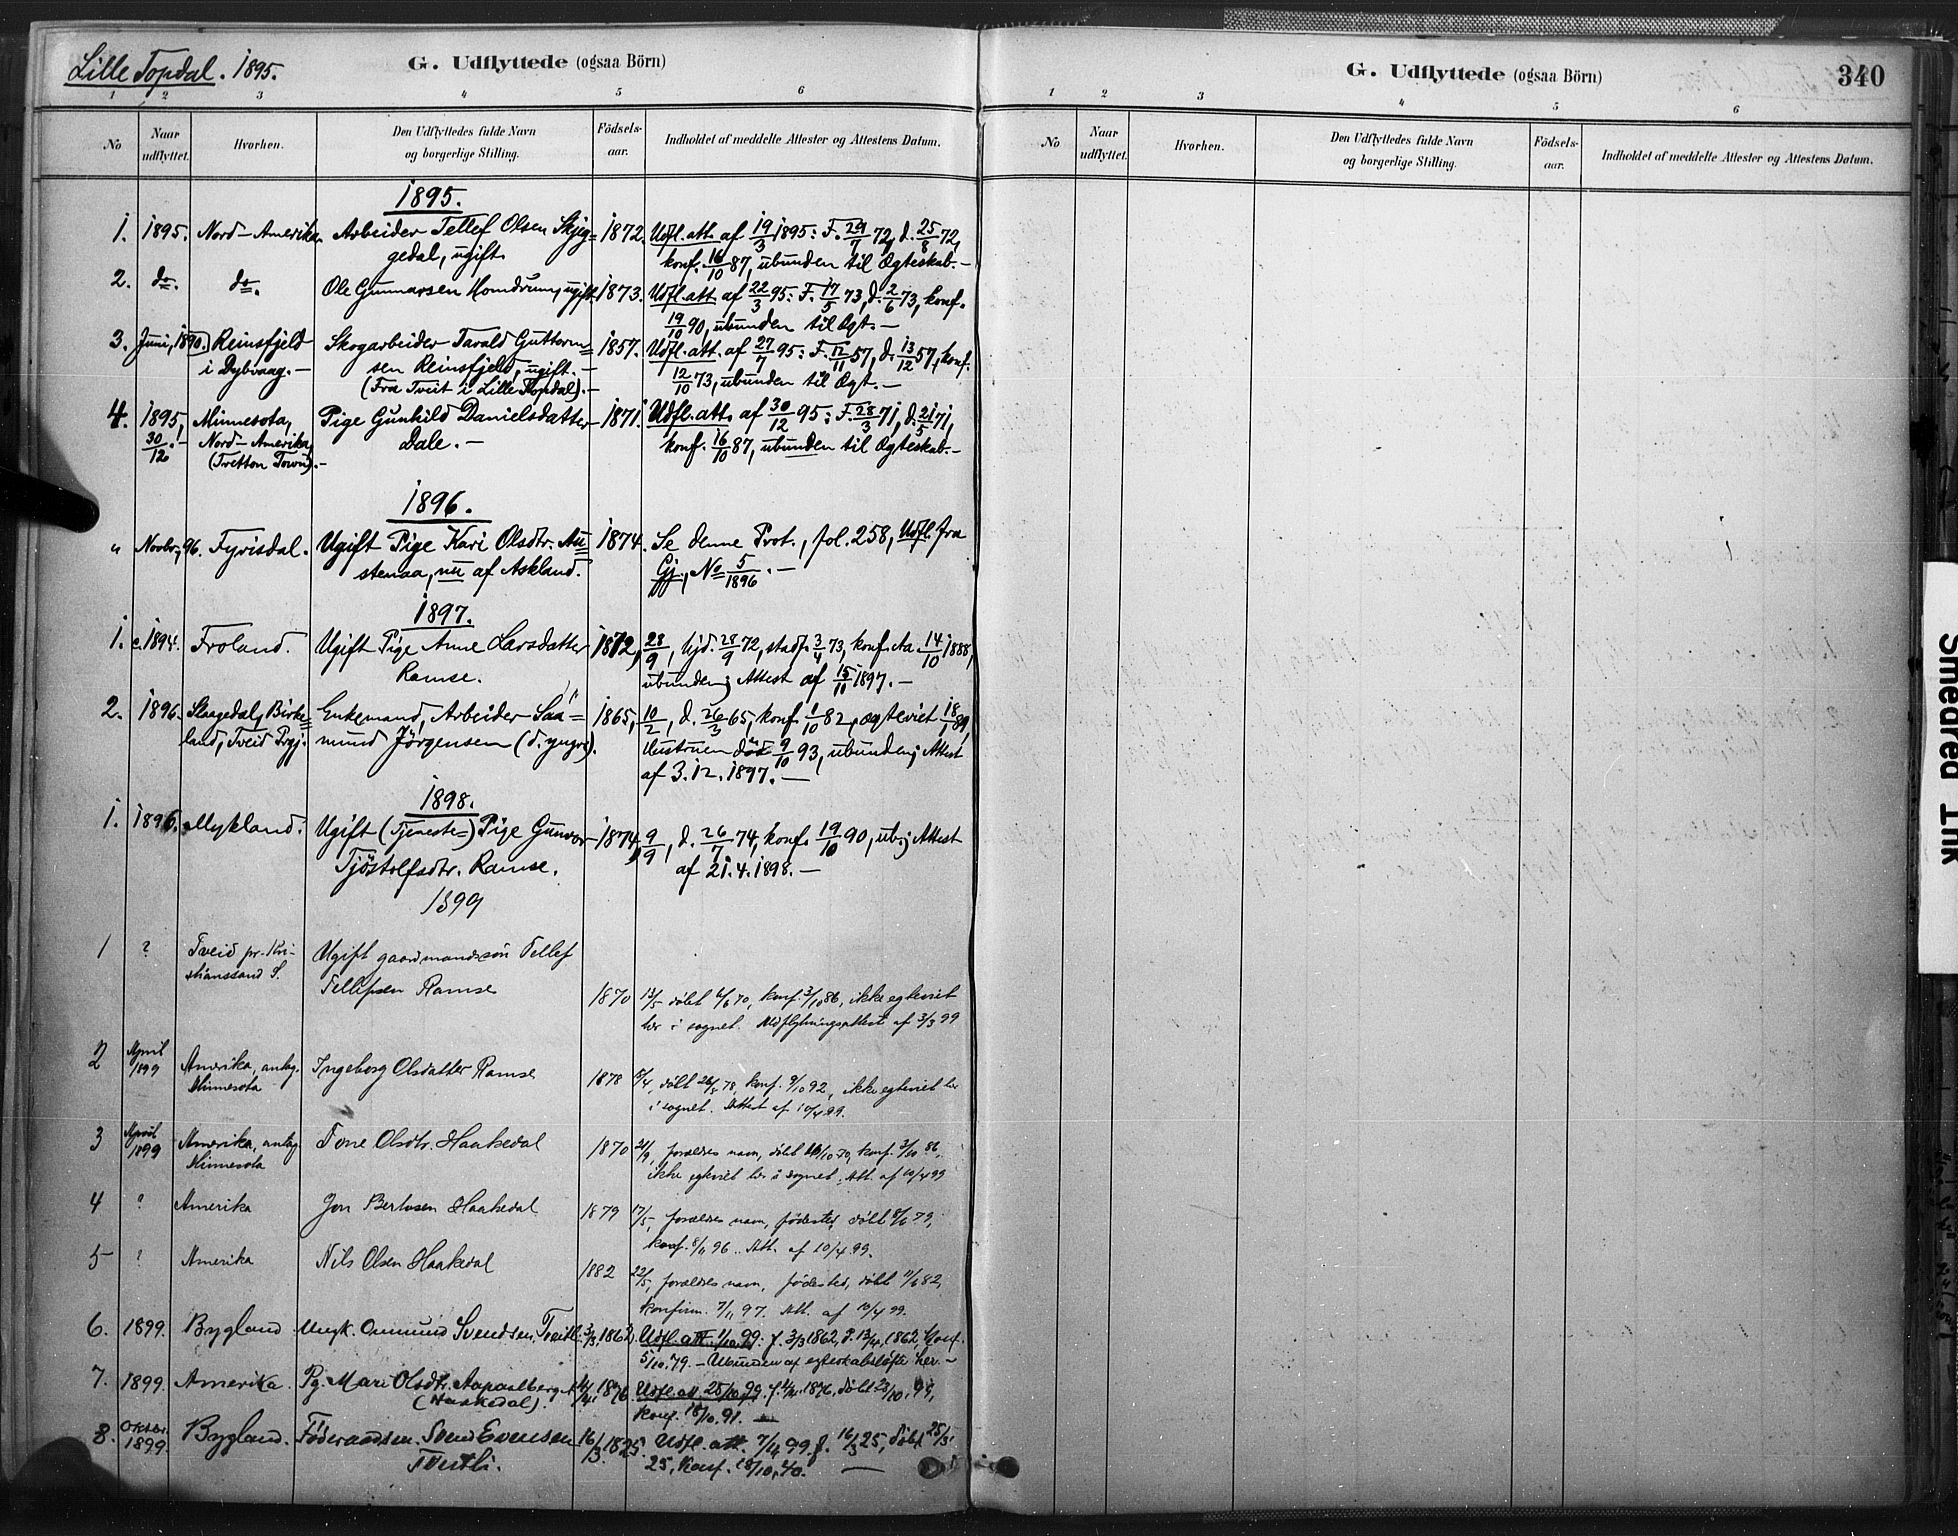 Lille Topdal. 1895.
G. Udflyttede (ogsaa Börn)
1 2 3 4 5 6
No
Naar udflyttet.
Hvorhen.
Den Udflyttedes fulde Navn og borgerlige Stilling.
Födsels-aar.
Indholdet af meddelte Attester og Attestens Datum.
1895.
1. 1895. Nord-Amerika. Arbeider Tellef Olsen Skjeg= 1872. Udfl. att. af 19/3 1895: F. 29/7 72, d. 25/8 72,
gedal, ugift. konf. 16/10 87, ubunden til Ægteskab.-
2. do. do. Ole Gunnarsen Homdrum, ugift. 1873. Udfl. att. af 22/3 95: F. 17/5 73, d. 2/6 73, konf.
19/10 90, ubunden til Ægt.-
3. Juni, 1890. Reinsfjeld Skogarbeider Tarald Guttorm= 1857. Udfl. att. af 27/7 95: F. 12/11 57, d. 13/12 57, konf.
i Dybvaag.- sen Reinsfjeld, ugift.- 12/10 73, ubunden til Ægt.-
(Fra Tveit i Lille Topdal).-
4. 1895, Minnesota, Pige Gunhild Danielsdatter 1871. Udfl. att. af 30/12 95: F. 28/3 71, d. 21/5 71,
30/12.- Nord-Amerika, Dale.- konf. 16/10 87, ubunden til Ægteskab.-
(Tretton Town).-
1896.
" Novbr. 96. Fyrisdal. Ugift Pige Kari Olsdtr. Au= 1874. Se denne Prot., fol. 258, Udfl. fra
stenaa, nu af Askland. Gj., No 5/1896.-
1897.
1. c. 1894. Froland. Ugift Pige Anne Larsdatter 1872, 23/9, hjd. 28/9 72, stadf. 3/4 73, konf. Aa. 14/10 1888,
Ramse. ubunden; Attest af 15/10 1897.-
2. 1896. Skaagedal, Birke= Enkemand, Arbeider Saa= 1865, 10/2, d. 26/3 65, konf. 1/10 82, ægteviet 18/1 89,
land, Tveid Prgj. mund Jörgensen (d. yngre). Hustruen död 9/10 93, ubunden; Attest
af 3.12.1897.-
1898.
1. 1896. Mykland. Ugift (Tjeneste=) Pige Gunvor 1874, 9/9, d. 26/7 74, konf. 19/10 90, ub.; Attest
Tjöstolfsdtr. Ramse. af 21.4.1898.-
1899
1 ? Tveid pr. Kri- Ugift gaardmandssön Tellef
stianssand S. Tellefsen Ramse 1870 13/5 döbt 6/6 70, konf. 3/10 86, ikke egteviet
her i sognet. Udflytningsattest af 3/3 99
2 April 1899 Amerika, antag. Ingeborg Olsdatter Ramse 1878 8/4, döbt 26/5 78, konf. 9/10 92, ikke egteviet her
Minnesota i sognet. Attest af 10/4 99.
3 April 1899 Amerika, antag. Tone Olsdtr. Haakedal 1870 21/9, foræLdres navn, döbt 10/10 70, konf. 3/10 86,
Minnesota ikke egteviet her i sognet. Att. af 10/4 99
4 ? Amerika Jon Bertusen Haakedal 1879 17/5, forældres navn, födested, döbt 8/6 79,
konf. 8/11 96. Att. af 10/4 99.
5 ? Amerika Nils Olsen Haakedal 1882 22/5, forældres navn, födested, döbt 11/6 82,
konfirm. 7/11 97. Att. af 10/4 99.
6. 1899. Bygland Ungk. Onmund Svendsen Tveitli 3/3 1862. Udfl. att. 1/10 99. f. 3/3 1862, d. 13/4 1862, Konf.
5/10 79.- Ubunden af egteskabslöfte her.-
7. 1899. Amerika. Pg. Mari Olsdtr. Aapaalberg 1876. Udfl. att. 25/10 99. 1876, döbt
(Haakedal). Konf. 18/10 91.-
8. Oktbr. 1899. Bygland. Föderaadsm. Svend Evensen 16/3 1825. Udfl. att. 7/11 99. f. 16/3 25, döbt 25/3
Tveitli. 25, Konf. 18/10 40.-
G. Udflyttede (ogsaa Börn)
340
1 2 3 4 5 6
No
Naar udflyttet.
Hvorhen.
Den Udflyttedes fulde Navn og borgerlige Stilling.
Födsels-aar.
Indholdet af meddelte Attester og Attestens Datum.
Smedred Ink